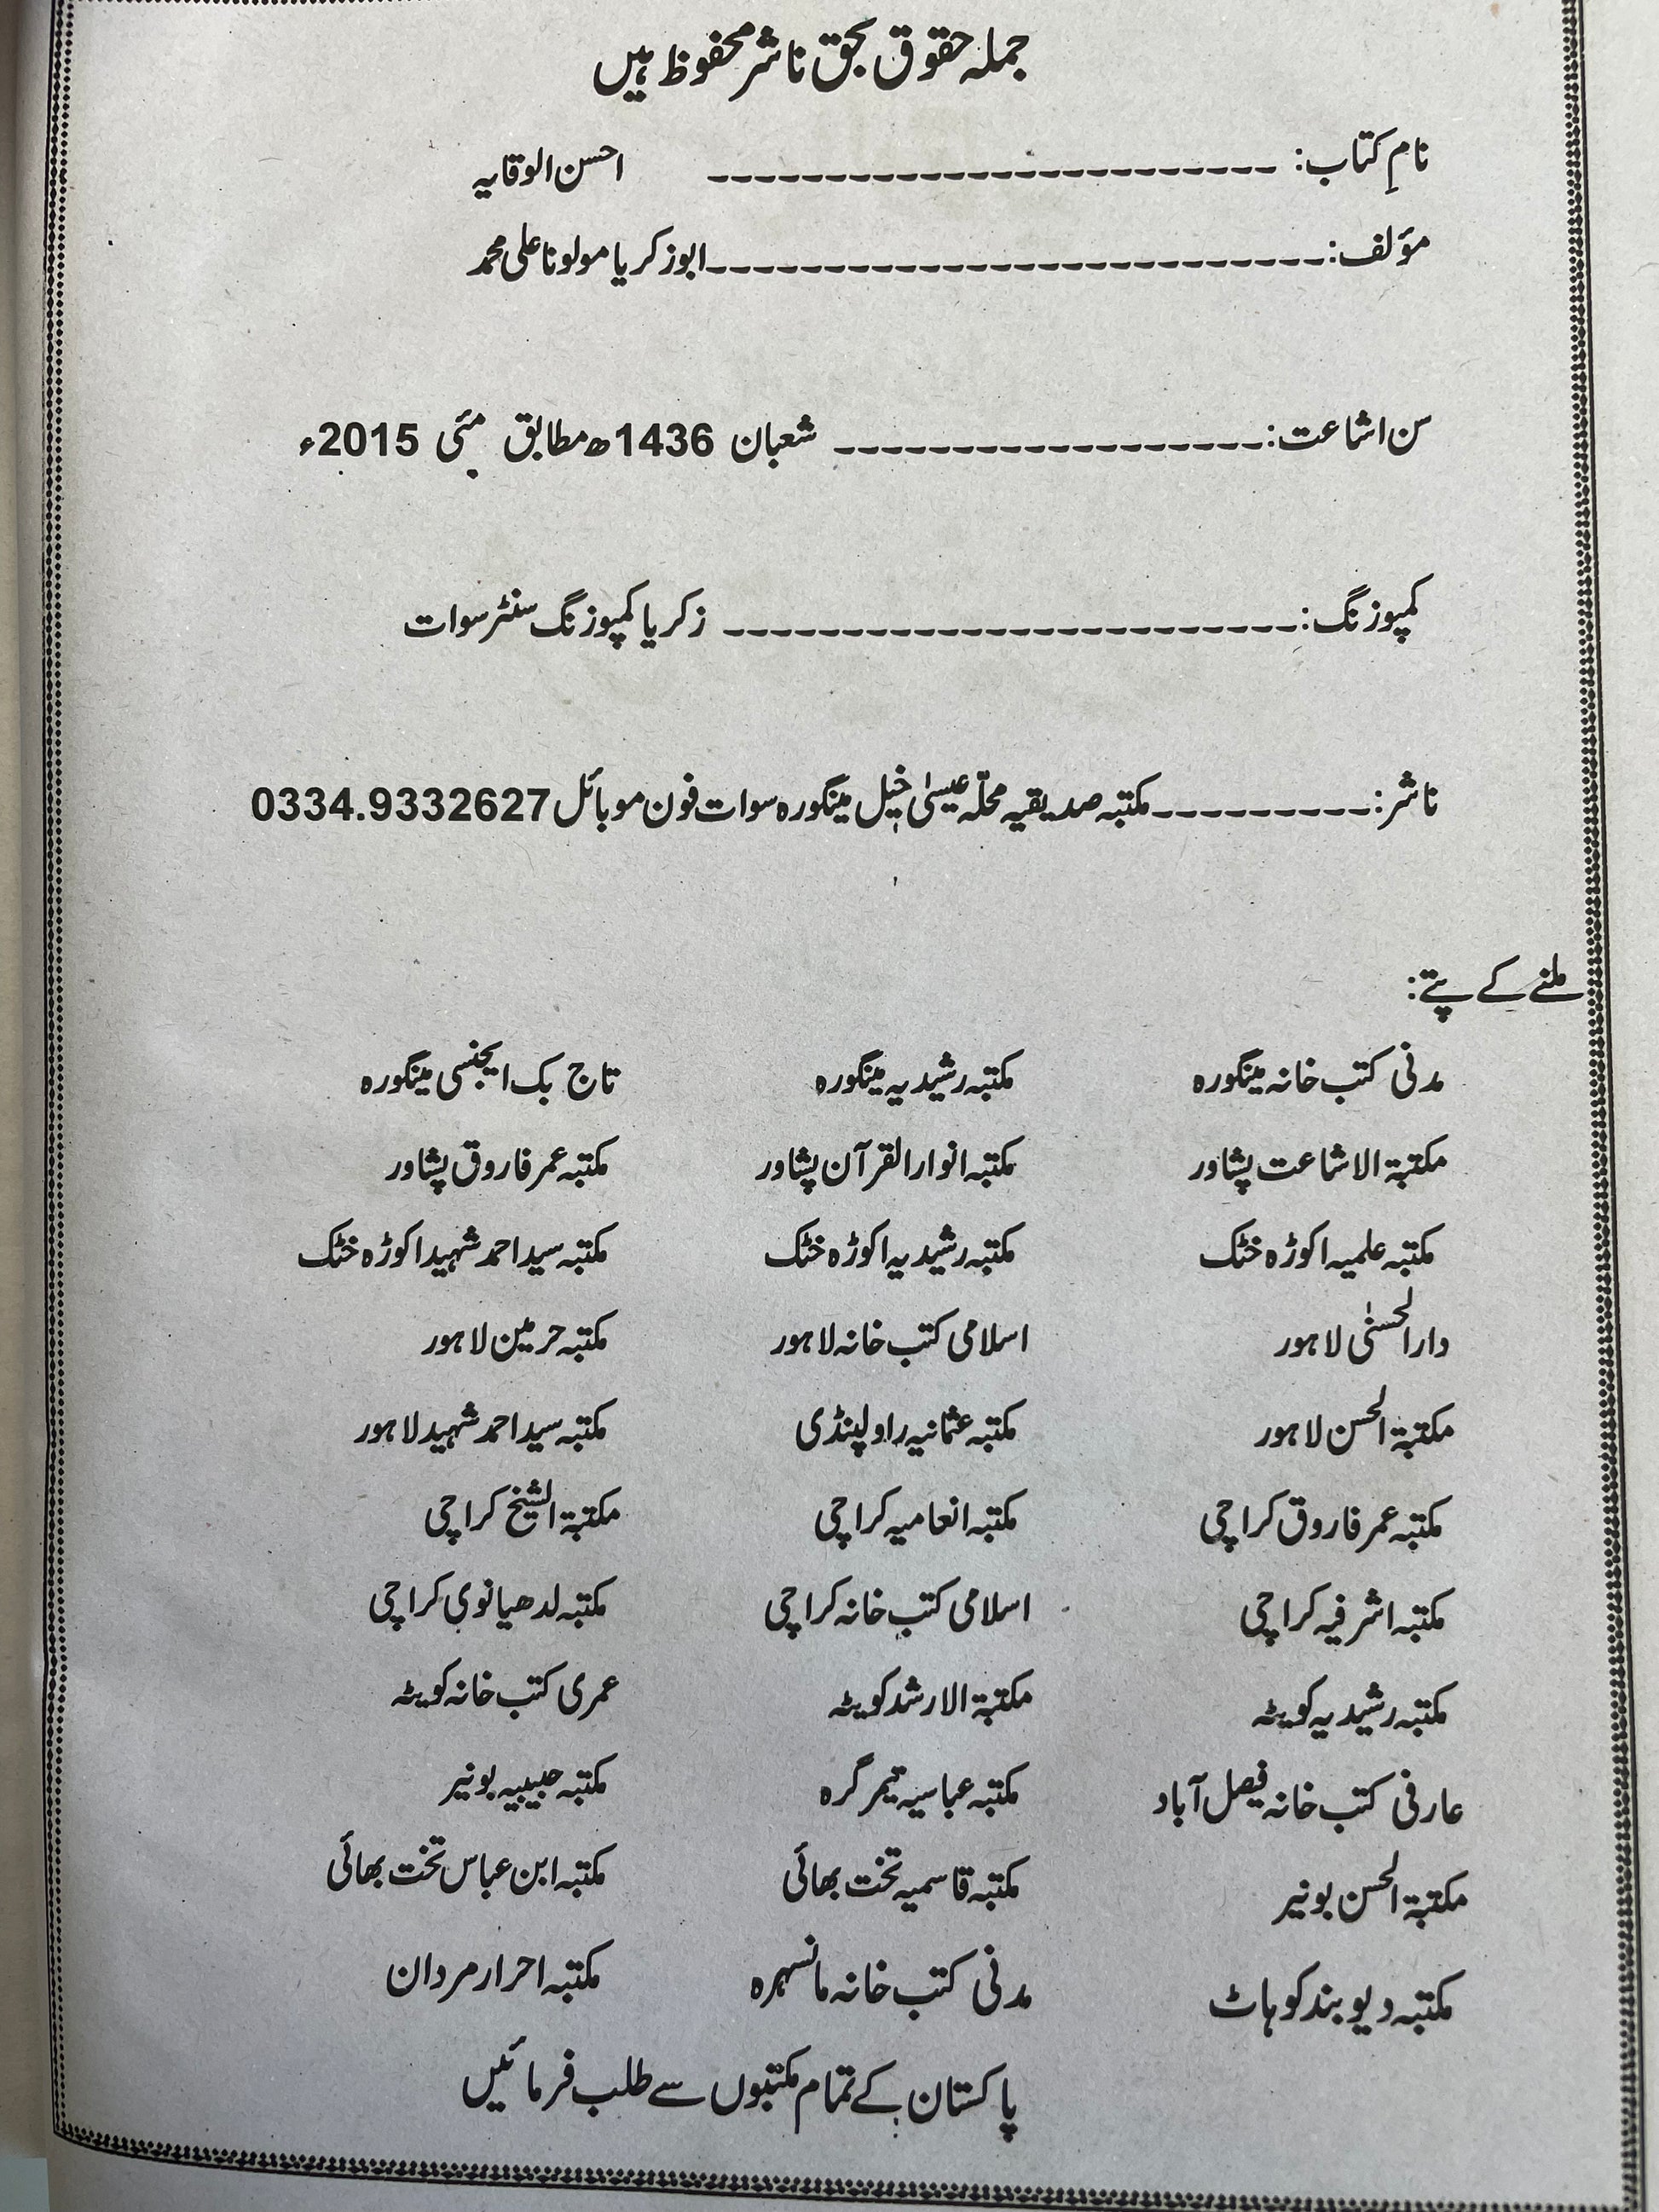 جملہ حقوق بحق ناشر محفوظ ہیں
نامِ کتاب: ------------------------ احسن الوقایہ
مؤلف:--------------------------ابوزکریا مولونا علی محمد
سن اشاعت:------------------ شعبان 1436ھ مطابق مئی 2015ء
کمپوزنگ:------------------------ زکریا کمپوزنگ سنٹر سوات
ناشر:---------مکتبہ صدیقیہ محلّہ عیسیٰ خیل مینگورہ سوات فون موبائل 0334.9332627
ملنے کے پتے:
مدنی کتب خانہ مینگورہ مکتبہ رشیدیہ مینگورہ تاج بک ایجنسی مینگورہ
مکتبۃ الاشاعت پشاور مکتبہ انوار القرآن پشاور مکتبہ عمر فاروق پشاور
مکتبہ علمیہ اکوڑہ خٹک مکتبہ رشیدیہ اکوڑہ خٹک مکتبہ سید احمد شہید اکوڑہ خٹک
دار الحسنٰی لاہور اسلامی کتب خانہ لاہور مکتبہ حرمین لاہور
مکتبۃ الحسن لاہور مکتبہ عثمانیہ راولپنڈی مکتبہ سید احمد شہید لاہور
مکتبہ عمر فاروق کراچی مکتبہ انعامیہ کراچی مکتبۃ الشیخ کراچی
مکتبہ اشرفیہ کراچی اسلامی کتب خانہ کراچی مکتبہ لدھیانوی کراچی
مکتبہ رشیدیہ کویٹہ مکتبۃ الارشد کویٹہ عمری کتب خانہ کویٹہ
عارفی کتب خانہ فیصل آباد مکتبہ عباسیہ تیمرگرہ مکتبہ حبیبیہ بونیر
مکتبۃ الحسن بونیر مکتبہ قاسمیہ تخت بھائی مکتبہ ابن عباس تخت بھائی
مکتبہ دیوبند کوہاٹ مدنی کتب خانہ مانسہرہ مکتبہ احرار مردان
پاکستان کے تمام مکتبوں سے طلب فرمائیں